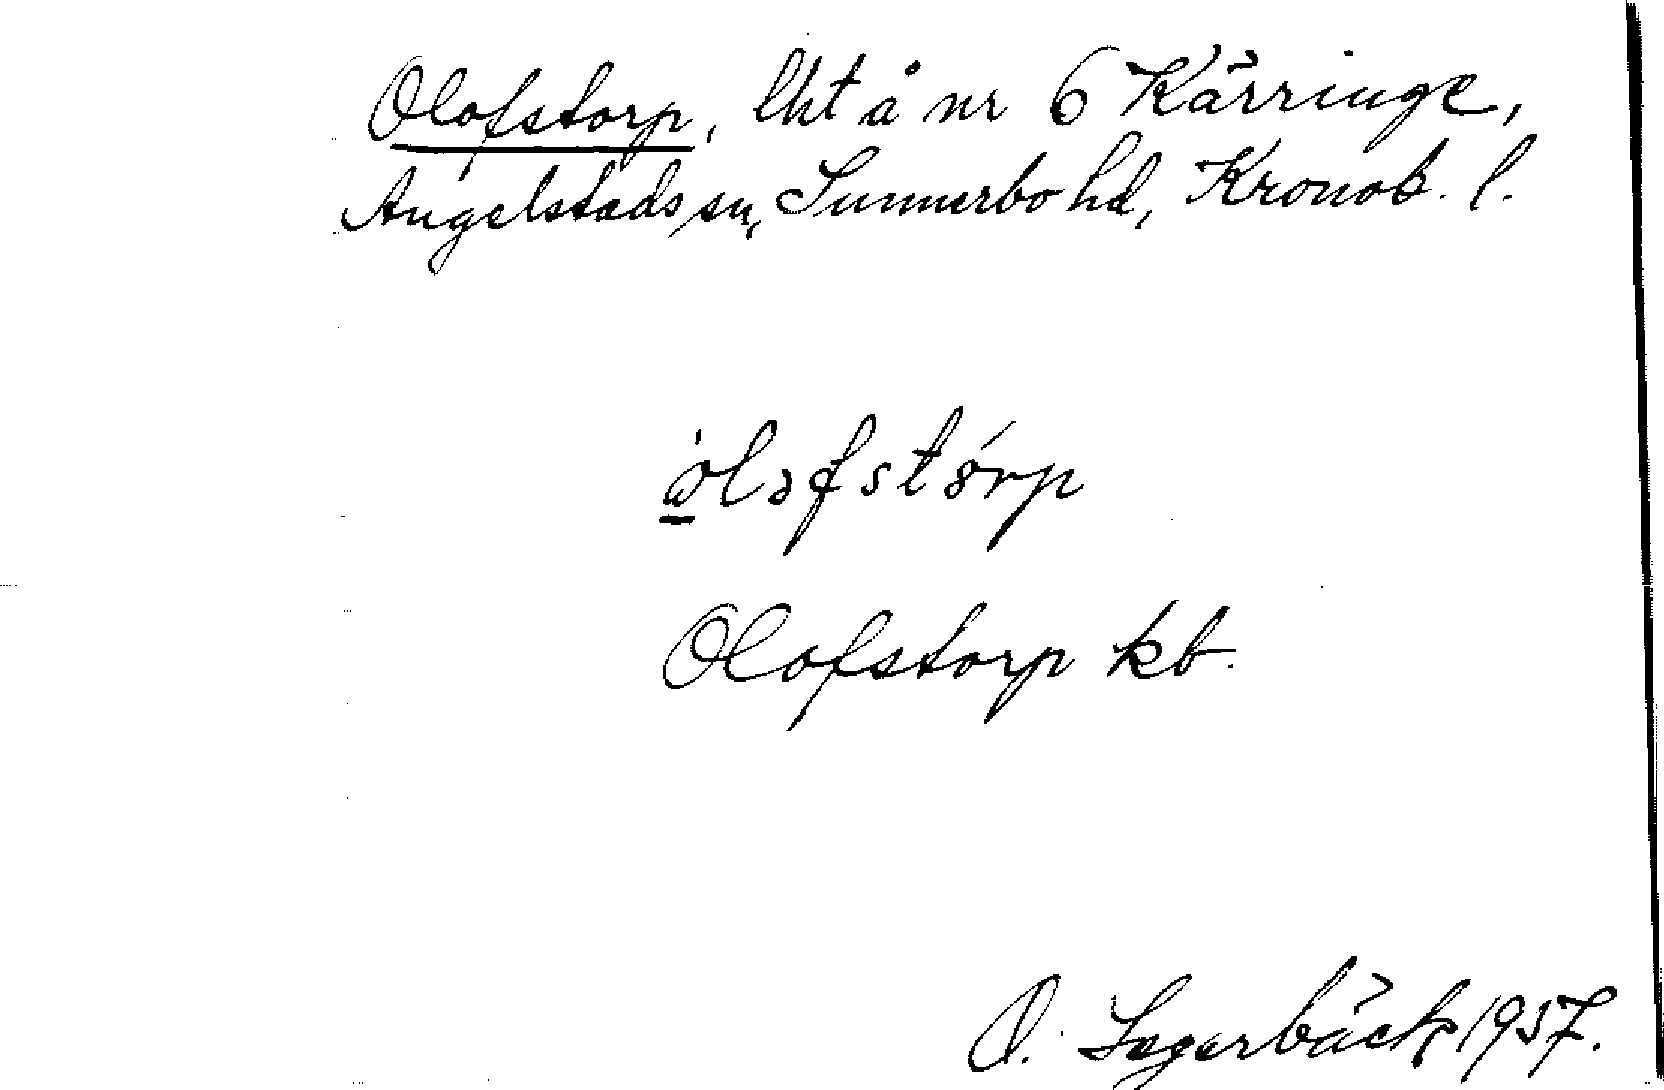 Olofstorp, lht å nr 6 Kärringe,
Angelstads sn, Sunnerbo hd, Kronob. l.
Olofstorp kb.
O. Lagerbäck 1957.